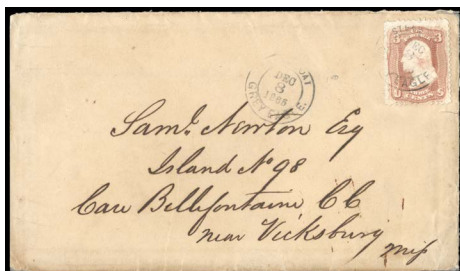 DEC
8
1865
3
Saml. Newton Esq
Island No 98
Care Bellefontaine C C
near Vicksburg
Mip